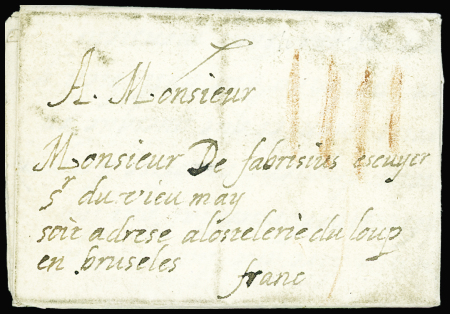 A. Monsieur
Monsieur De fabrisius escuyer
sr du vieu may
soit adrese alostelerie du loup
en bruseles
franc